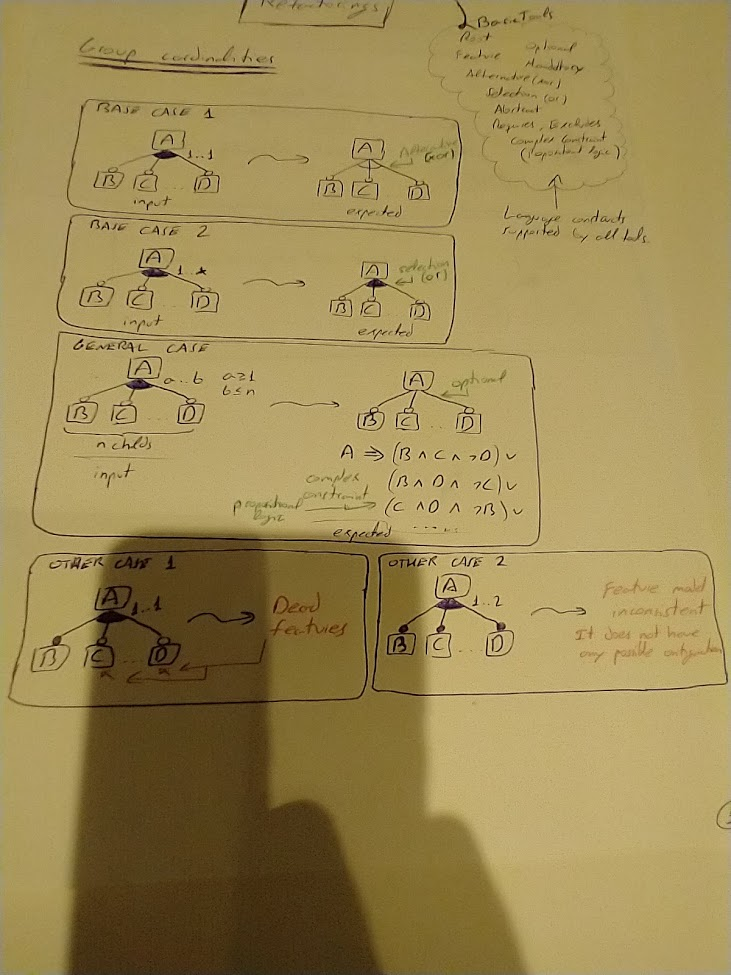 Refactorings
Basic Tools
Root
Feature Optional
Mandatory
Alternative (xor)
Selection (or)
Abstract
Requires, Excludes
Complex Constraint
(Propositional logic)
Language constructs
supported by all tools
Group cardinalities
BASE CASE 1
A
1..1
B C ... D
input
A
Alternative
(xor)
B C D
expected
BASE CASE 2
A
1..*
B C ... D
input
A
selection
(or)
B C D
expected
GENERAL CASE
A
a..b a≥1
b≤n
B C ... D
n childs
input
A
optional
B C .. D
A ⇒ (B ∧ C ∧ ¬D) ∨
(B ∧ D ∧ ¬C) ∨
(C ∧ D ∧ ¬B) ∨
complex
constraint
propositional
logic
expected
OTHER CASE 1
A
1..1
B C ... D
Dead
features
OTHER CASE 2
A
1..2
B C ... D
Feature model
inconsistent
It does not have
any possible configuration